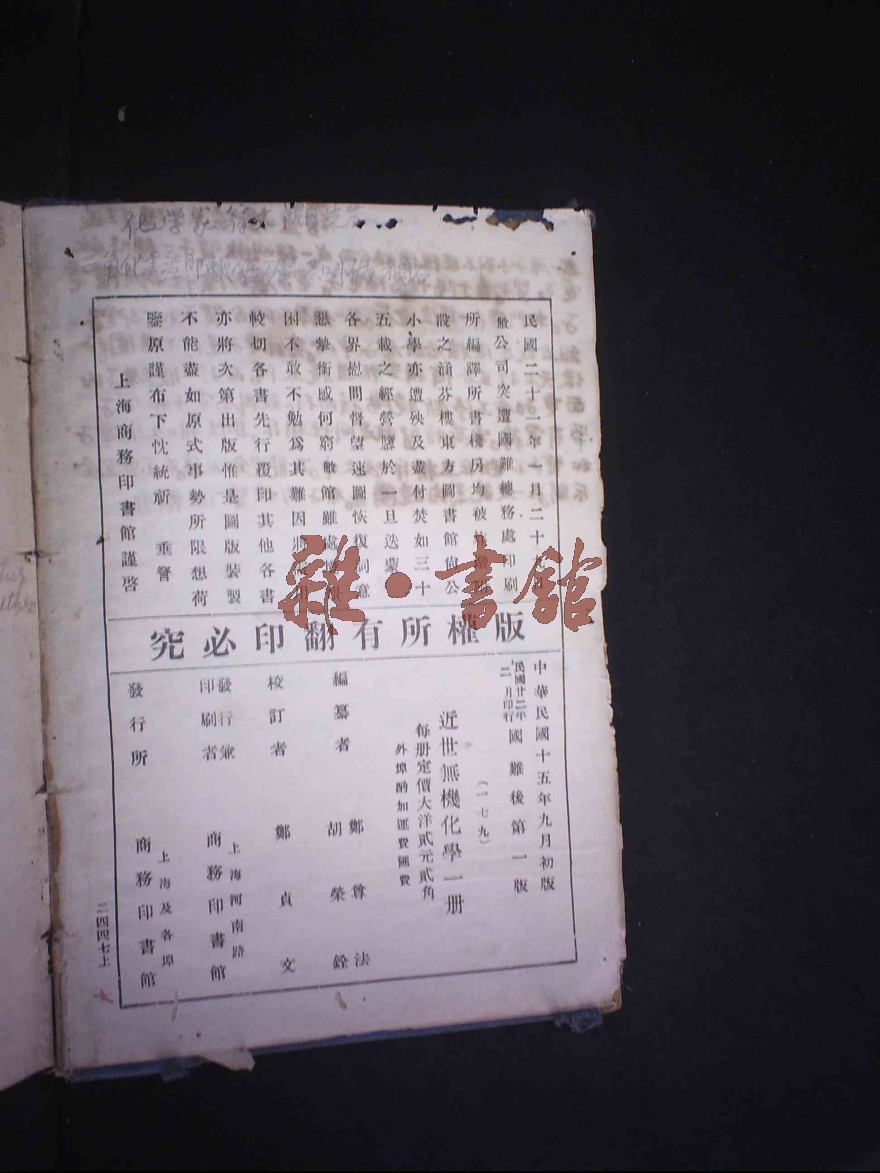 民國二十一年一月二十九日
敝公司突遭國難總務處印刷
所編譯所書棧房均被
設之涵芬樓東方圖書館尙公
小學亦遭殃及盡付焚如三十
五載之經營隳於一旦迭蒙
各界慰問督望速圖恢復詞意
懇摯銜感何窮敝館雖處
困不敢不勉爲其難因將
較切各書先行覆印其他各書
亦將次第出版惟是圖版裝製
不能盡如原式事勢所限想荷
鑒原謹布下忱統祈 垂詧
上海商務印書館謹啓
雜·書館
版權所有翻印必究
中華民國十五年九月初版
民國廿二年二月印行 國難後第一版
(一七九)
近世無機化學一册
每册定價大洋貳元貳角
外埠酌加運費匯費
編纂者 鄭尊法 胡榮銓
校訂者 鄭貞文
發行兼印刷者 上海河南路 商務印書館
發行所 上海及各埠 商務印書館
二四四七上